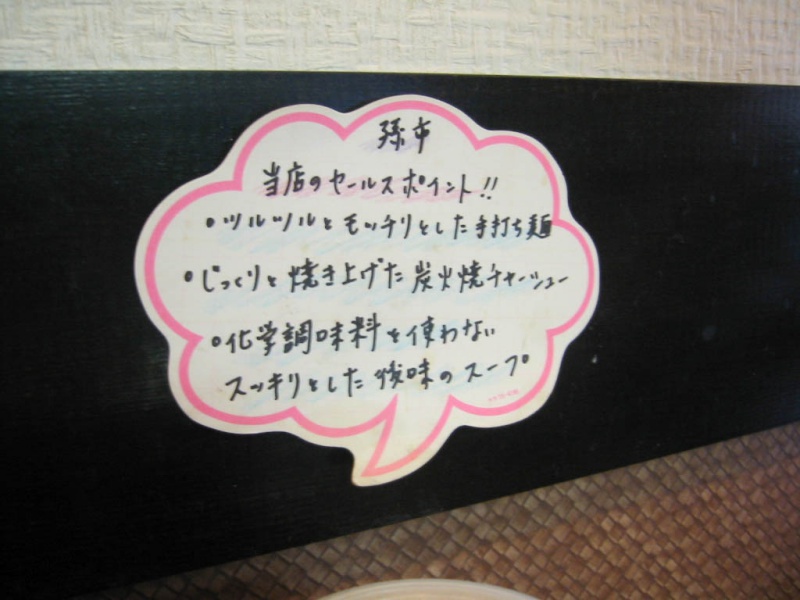 孫市
当店のセールスポイント!!
・ツルツルとモッチリとした手打ち麺
・じっくりと焼き上げた炭火焼チャーシュー
・化学調味料を使わない
スッキリとした後味のスープ